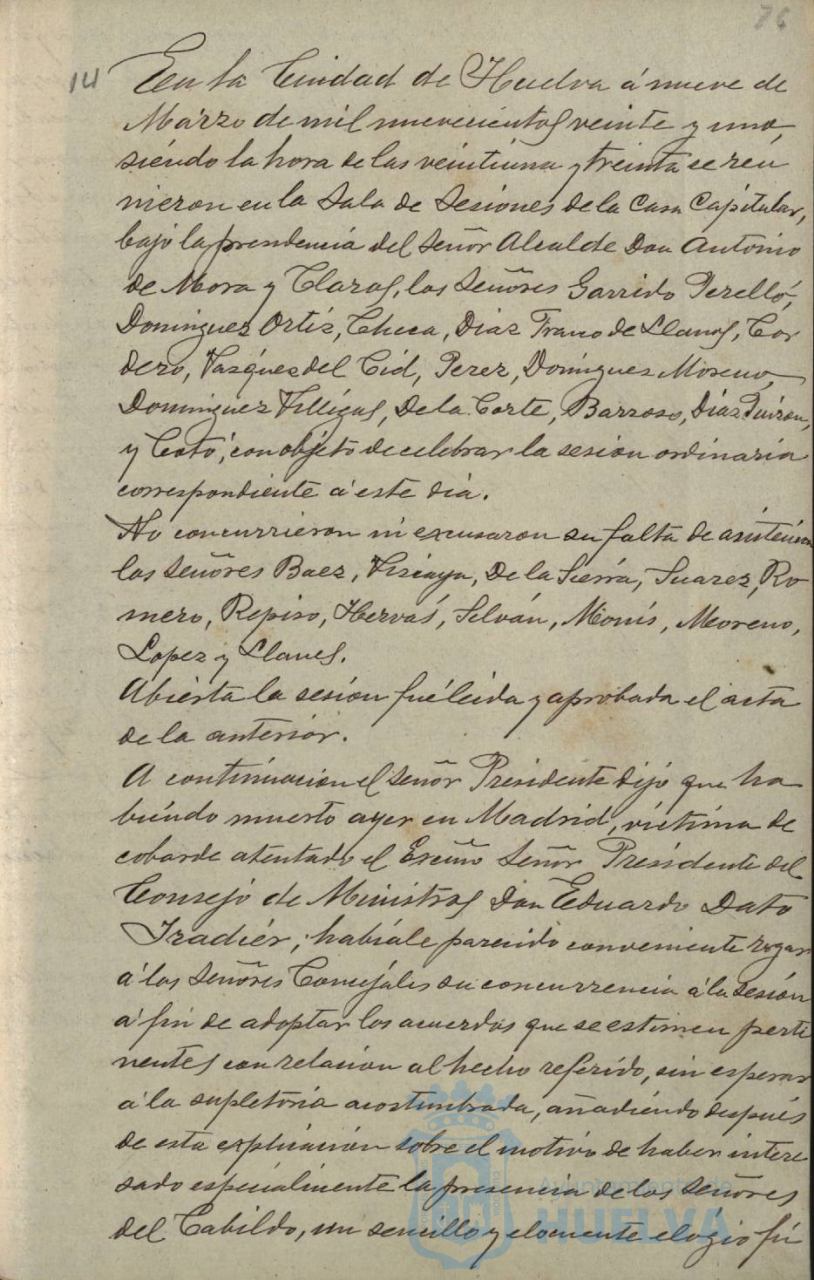 76
14 En la Ciudad de Huelva á nueve de
Marzo de mil nuevecientos veinte y uno,
siendo la hora de las veintiuna y treinta se reu
nieron en la Sala de Sesiones de la Casa Capitular,
bajo la presidencia del Señor Alcalde Don Antonio
de Mora y Claros, los Señores Garrido Perelló,
Dominguez Ortiz, Checa, Diaz Franco de Llanos, Cor
dero, Vazquez del Cid, Perez, Dominguez Moreno,
Dominguez Villegas, De la Corte, Barroso, Diaz
y Cotó, con objeto de celebrar la sesion ordinaria
correspondiente á este dia.
No concurrieron ni excusaron su falta de asistencia
los Señores Baez, Vizcaya, De la Sierra, Suarez, Ro
mero, Repiso, Hervás, Selván, Monís, Moreno,
Lopez y Llanes.
Abierta la sesion fué leida y aprobada el acta
de la anterior.
A continuacion el Señor Presidente dijo que ha
biendo muerto ayer en Madrid, victima de
cobarde atentado el Excmo Señor Presidente del
Consejo de Ministros Don Eduardo Dato
Iradiér, habiale parecido conveniente rogar
á los Señores Concejales su concurrencia á la sesión
á fin de adoptar los acuerdos que se estimen perti
nentes con relacion al hecho referido, sin esperar
á la supletoria acostumbrada, añadiendo después
de esta explicación sobre el motivo de haber intere
sado especialmente la presencia de los Señores
del Cabildo, un sencillo y elocuente elogio fú
Ayuntamiento de
HUELVA